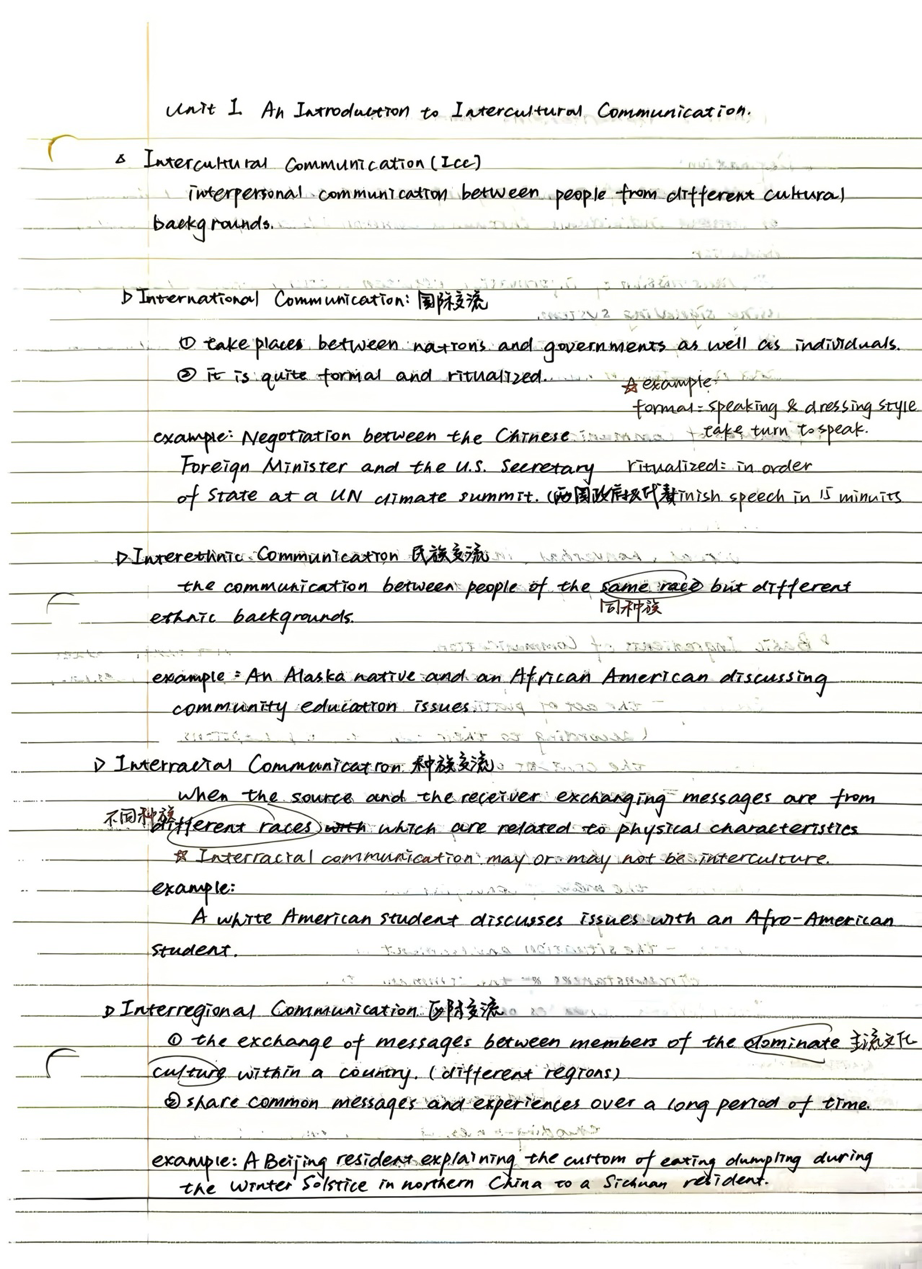 Unit 1 An Introduction to Intercultural Communication.
Intercultural Communication (Icc)
interpersonal communication between people from different cultural
backgrounds.
▷ International Communication: 国际交流
① take places between nations and governments as well as individuals.
② it is quite formal and ritualized.
☆ example
formal: speaking & dressing style
take turn to speak.
example: Negotiation between the Chinese
Foreign Minister and the U.S. Secretary
ritualized: in order
of State at a UN climate summit. (两国政府级代表
finish speech in 15 minuits
▷ Interethnic Communication 民族交流
the communication between people of the same race but different
同种族
ethnic backgrounds.
example: An Alaska native and an African American discussing
community education issues
▷ Interracial Communication 种族交流
when the source and the receiver exchanging messages are from
不同种族
different races with which are related to physical characteristics
☆ Interracial communication may or may not be interculture.
example:
A white American student discusses issues with an Afro-American
student.
▷ Interregional Communication 区际交流
① the exchange of messages between members of the dominate 主流文化
culture within a country. (different regions)
② share common messages and experiences over a long period of time.
example: A Beijing resident explaining the custom of eating dumpling during
the Winter Solstice in northern China to a Sichuan resident.